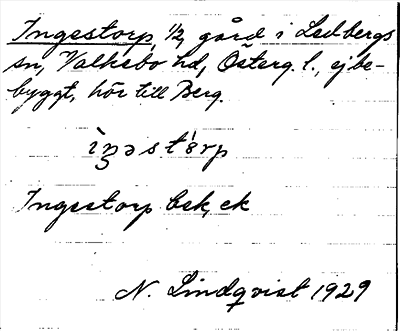 Ingestorp, ½, gård i Ledbergs
sn, Valkebo hd, Österg. l., ej be-
byggt, hör till Berg.
Ingestorp bsk, ek
N. Lindqvist 1929